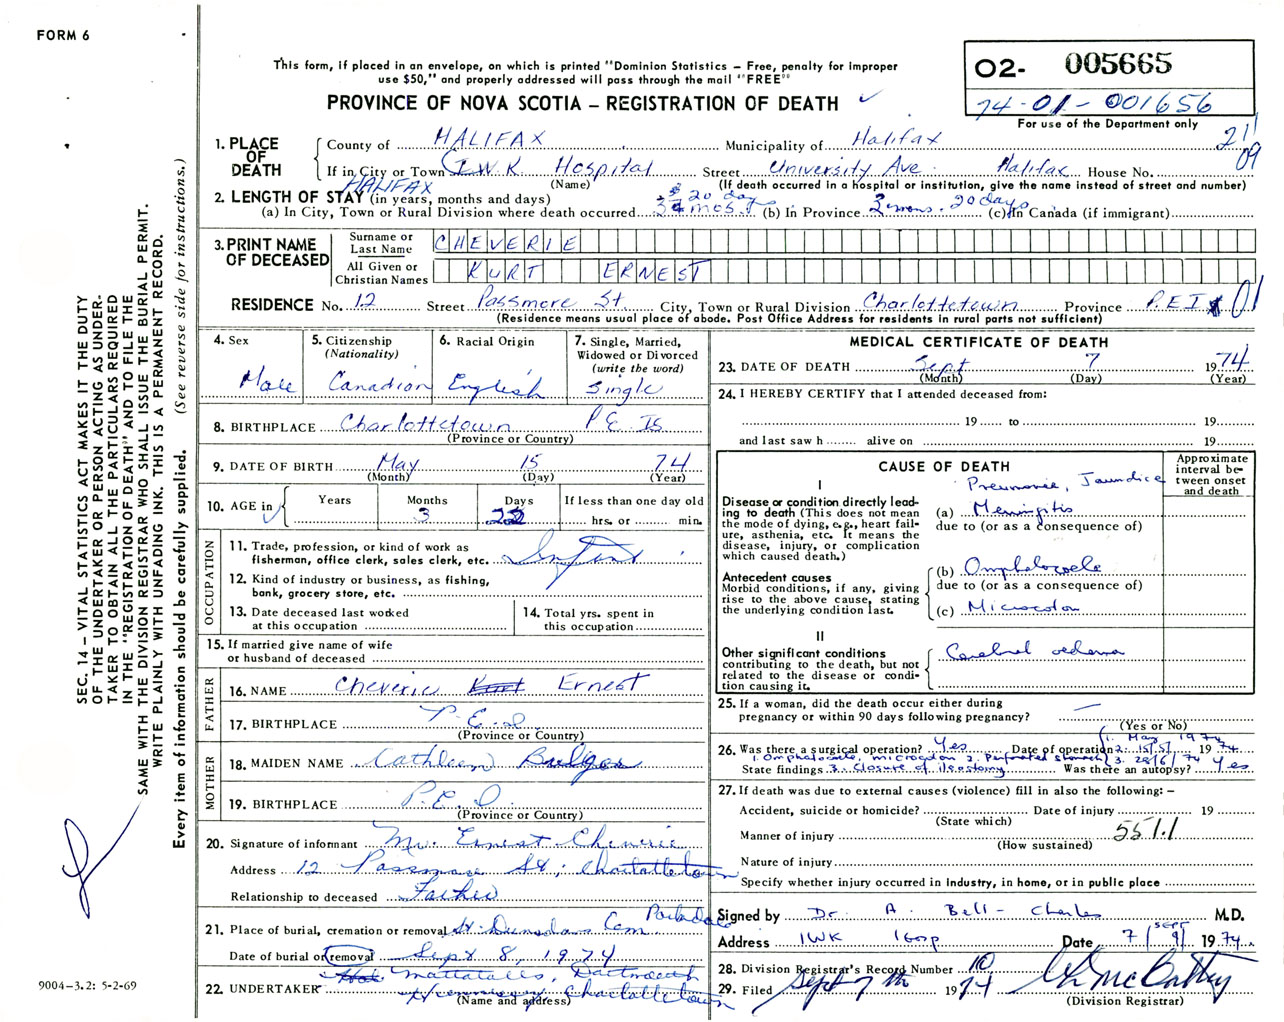 FORM 6
This form, if placed in an envelope, on which is printed "Dominion Statistics – Free, penalty for improper
use $50," and properly addressed will pass through the mail "FREE"
PROVINCE OF NOVA SCOTIA – REGISTRATION OF DEATH ✓
O2- 005665
74-01-001656
For use of the Department only
21
09
1. PLACE OF DEATH
County of HALIFAX Municipality of Halifax
If in City or Town I.W.K Hospital Street University Ave. Halifax House No.
HALIFAX (Name) (If death occurred in a hospital or institution, give the name instead of street and number)
2. LENGTH OF STAY (in years, months and days)
(a) In City, Town or Rural Division where death occurred 3 mos. 20 days (b) In Province 3 mons. 20 days (c) In Canada (if immigrant)
3. PRINT NAME OF DECEASED
Surname or Last Name CHEVERIE
All Given or Christian Names KURT ERNEST
RESIDENCE No. 12 Street Passmore St. City, Town or Rural Division Charlottetown Province P.E.I 01
(Residence means usual place of abode. Post Office Address for residents in rural parts not sufficient)
4. Sex
Male
5. Citizenship
(Nationality)
Canadian
6. Racial Origin
English
7. Single, Married,
Widowed or Divorced
(write the word)
Single
8. BIRTHPLACE Charlottetown P.E. Is
(Province or Country)
9. DATE OF BIRTH May 15 74
(Month) (Day) (Year)
10. AGE in Years Months Days If less than one day old
3 22 hrs. or min.
OCCUPATION
11. Trade, profession, or kind of work as
fisherman, office clerk, sales clerk, etc. Infant
12. Kind of industry or business, as fishing,
bank, grocery store, etc.
13. Date deceased last worked
at this occupation
14. Total yrs. spent in
this occupation
15. If married give name of wife
or husband of deceased
FATHER
16. NAME Cheverie Kurt Ernest
17. BIRTHPLACE P.E.I.
(Province or Country)
MOTHER
18. MAIDEN NAME Cathleen
19. BIRTHPLACE P.E.I.
(Province or Country)
20. Signature of informant Mr. Ernest Cheverie
Address 12 Passmore St., Charlottetown
Relationship to deceased Father
21. Place of burial, cremation or removal St. Dunstans Cem Parkdale
Date of burial or removal Sept 8, 1974
Mattatalls, Dartmouth
22. UNDERTAKER Hennessey Charlottetown
(Name and address)
MEDICAL CERTIFICATE OF DEATH
23. DATE OF DEATH Sept 7 1974
(Month) (Day) (Year)
24. I HEREBY CERTIFY that I attended deceased from:
19 to 19
and last saw h alive on 19
CAUSE OF DEATH
Approximate interval between onset and death
I
Disease or condition directly leading to death (This does not mean the mode of dying, e.g., heart failure, asthenia, etc. It means the disease, injury, or complication which caused death.)
Pneumonia, Jaundice
(a) Meningitis
due to (or as a consequence of)
Antecedent causes
Morbid conditions, if any, giving rise to the above cause, stating the underlying condition last.
(b) Omphalocoele
due to (or as a consequence of)
(c) Microcolon
II
Other significant conditions
contributing to the death, but not related to the disease or condition causing it.
Cerebral oedema
25. If a woman, did the death occur either during
pregnancy or within 90 days following pregnancy? —
(Yes or No)
26. Was there a surgical operation? Yes Date of operation 1. May 1974 2. 15/5/ 1974
1. Omphalocoele, microcolon 2. Perforated stomach 3. 28/6/74
State findings 3. Closure of ileostomy Was there an autopsy? Yes
27. If death was due to external causes (violence) fill in also the following: –
Accident, suicide or homicide? Date of injury 19
(State which)
Manner of injury 551.1
(How sustained)
Nature of injury
Specify whether injury occurred in industry, in home, or in public place
Signed by Dr. A. Bell-Charles M.D.
Address IWK Hosp Date 7/ sept 1974
28. Division Registrar's Record Number 10
29. Filed Sept 7th 1974
(Division Registrar)
SEC. 14 – VITAL STATISTICS ACT MAKES IT THE DUTY
OF THE UNDERTAKER OR PERSON ACTING AS UNDER-
TAKER TO OBTAIN ALL THE PARTICULARS REQUIRED
IN THE "REGISTRATION OF DEATH" AND TO FILE THE
SAME WITH THE DIVISION REGISTRAR WHO SHALL ISSUE THE BURIAL PERMIT.
WRITE PLAINLY WITH UNFADING INK. THIS IS A PERMANENT RECORD.
Every item of information should be carefully supplied. (See reverse side for instructions.)
9004-3.2: 5-2-69